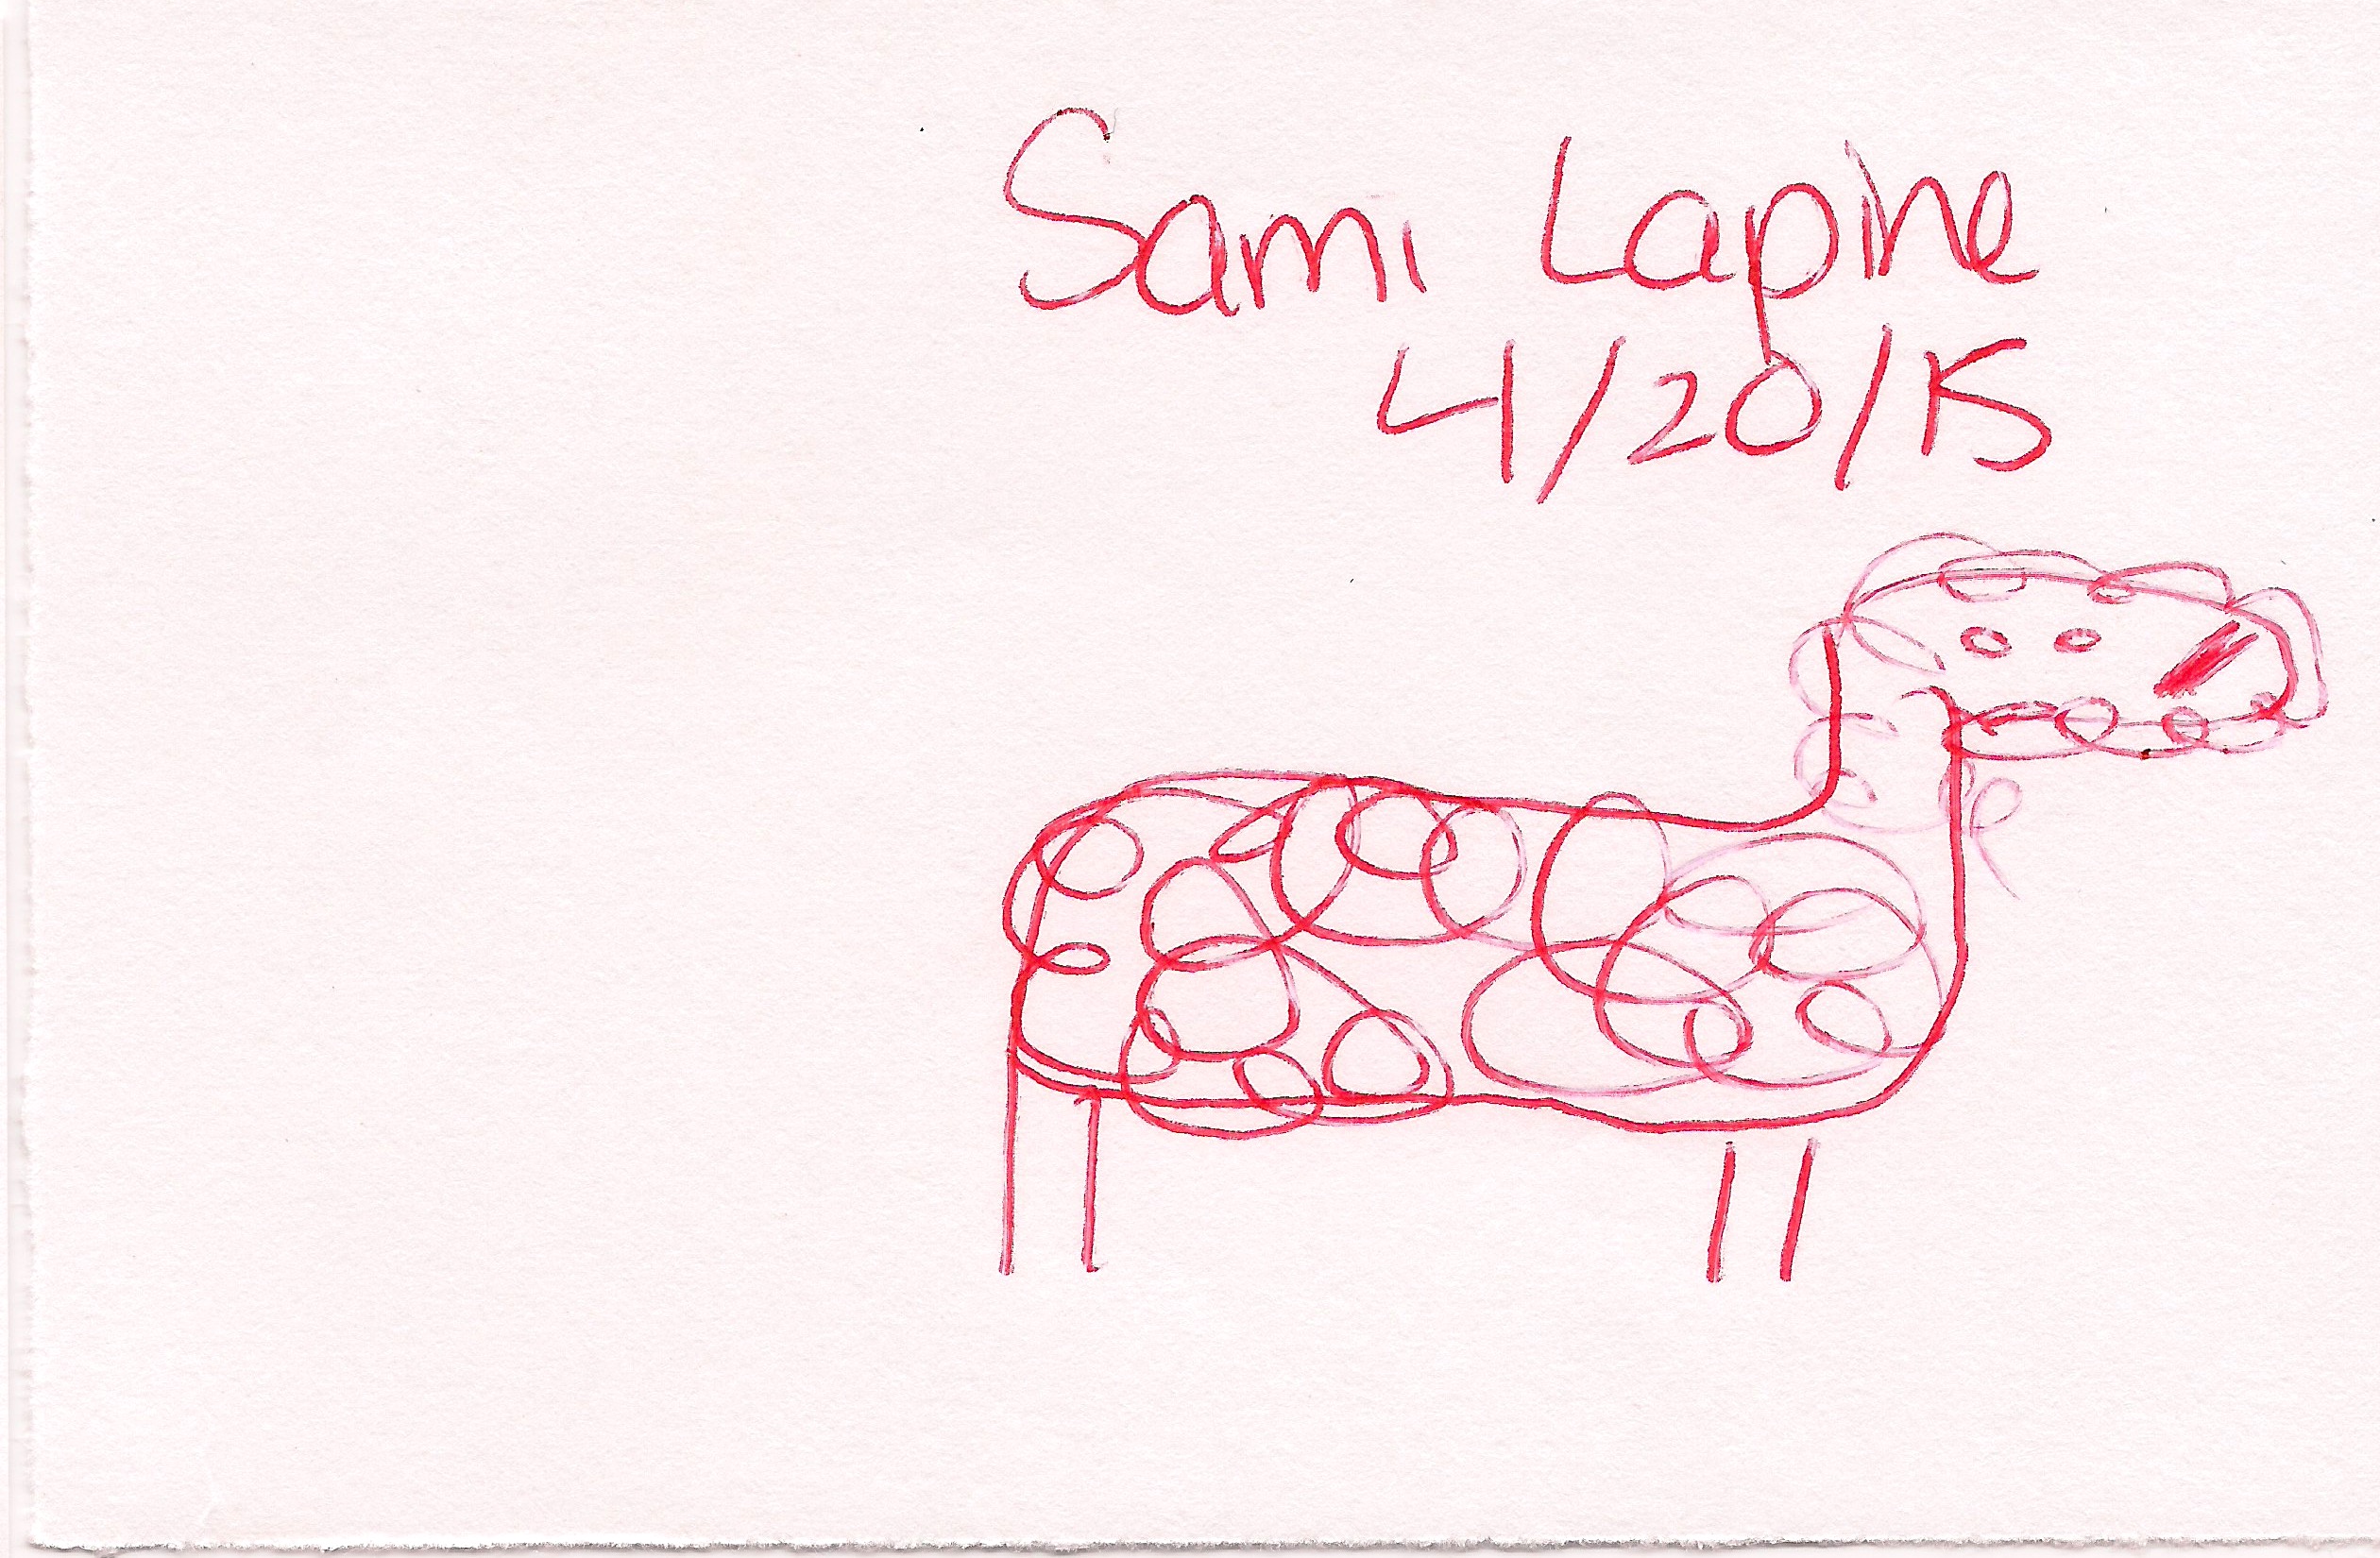 Sami Lapine
4/20/15